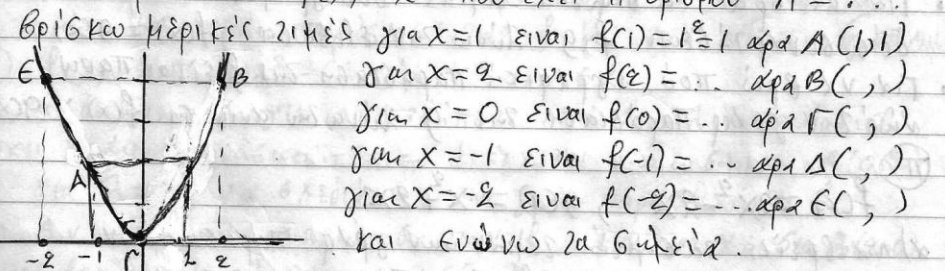 βρίσκω μερικές τιμές για x=1 είναι f(1)=1²=1 άρα A(1,1)
για x=2 είναι f(2)=.. άρα B( , )
για x=0 είναι f(0)=.. άρα Γ( , )
για x=-1 είναι f(-1)=.. άρα Δ( , )
για x=-2 είναι f(-2)=... άρα Ε( , )
και ενώνω τα σημεία.
Ε B
Δ
Γ
-2 -1 Γ 1 2